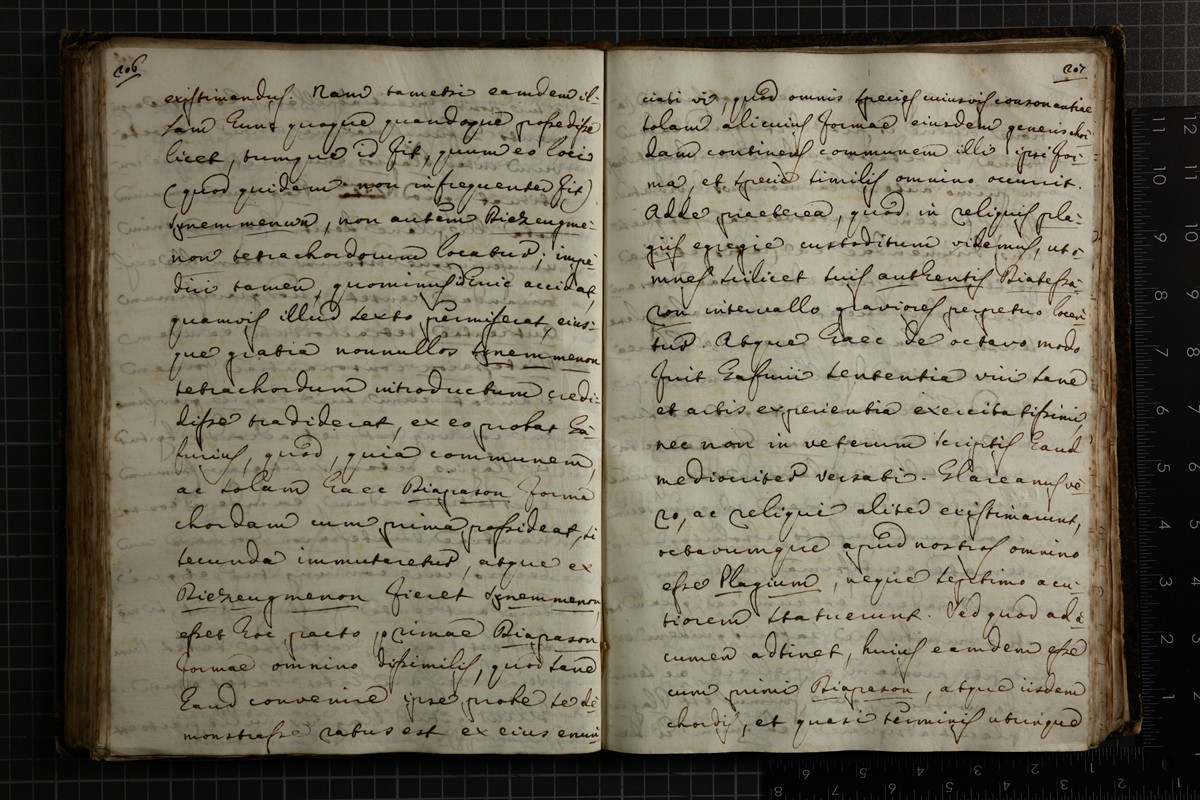 206
existimandus. Nam tametsi eamdem il-
lam hunc quoque quandoque possedisse
licet, tumque id fit, quum eo loci
(quod quidem non infrequenter fit)
synemmenωn, non autem Diezeugme-
non tetrachordorum locatur; impe-
diri tamen, quominus huic accidat,
quamvis illud sexto permiserat, eius-
que gratia nonnullos synemmenon
tetrachordum introductum credi-
disse tradiderat, ex eo probat Ga-
furius, quod, quia communem,
ac solam haec Diapason forma
chordam cum prima possideat, si
secunda immutaretur, atque ex
Diezeugmenon fieret synemmenon,
esset hoc pacto primae Diapason
formae omnino dissimilis, quod sane
haud convenire ipse probe se de-
monstrasse ratus est ex eius enun
207
ciati vi, quod omnis species cuiusvis consonantiae
solam alicuius formae eiusdem generis chor-
dam continens communem illi ipsi for-
ma, et specie similis omnino occurrit.
Adde praeterea, quod in reliquis pla-
giis egregie custoditum videmus, ut o-
mnes scilicet suis authentis Diatessa-
ron intervallo graviores perpetuo locen-
tur. Atque haec de octavo modo
fuit Gafurii sententia viri sane
et artis experientia exercitatissimi,
nec non in veterum scriptis haud
mediocriter versati. Glareanus ve-
ro, ac reliqui aliter existimarunt,
octavumque apud nostros omnino
esse Plagium, neque septimo acu-
tiorem statuerunt. Sed quod ad a-
cumen adtinet, huius eamdem esse
cum primi Diapason, atque iisdem
chordis, et quasi terminis utrinque